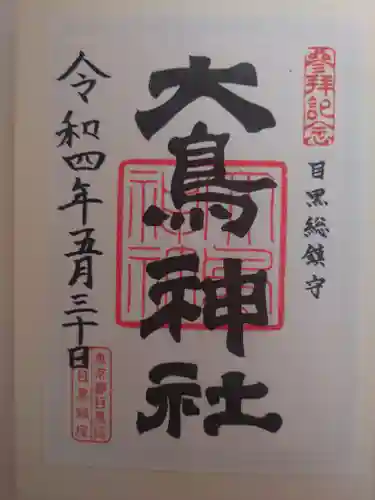 參拜記念
目黒総鎮守
大鳥神社
令和四年五月三十日